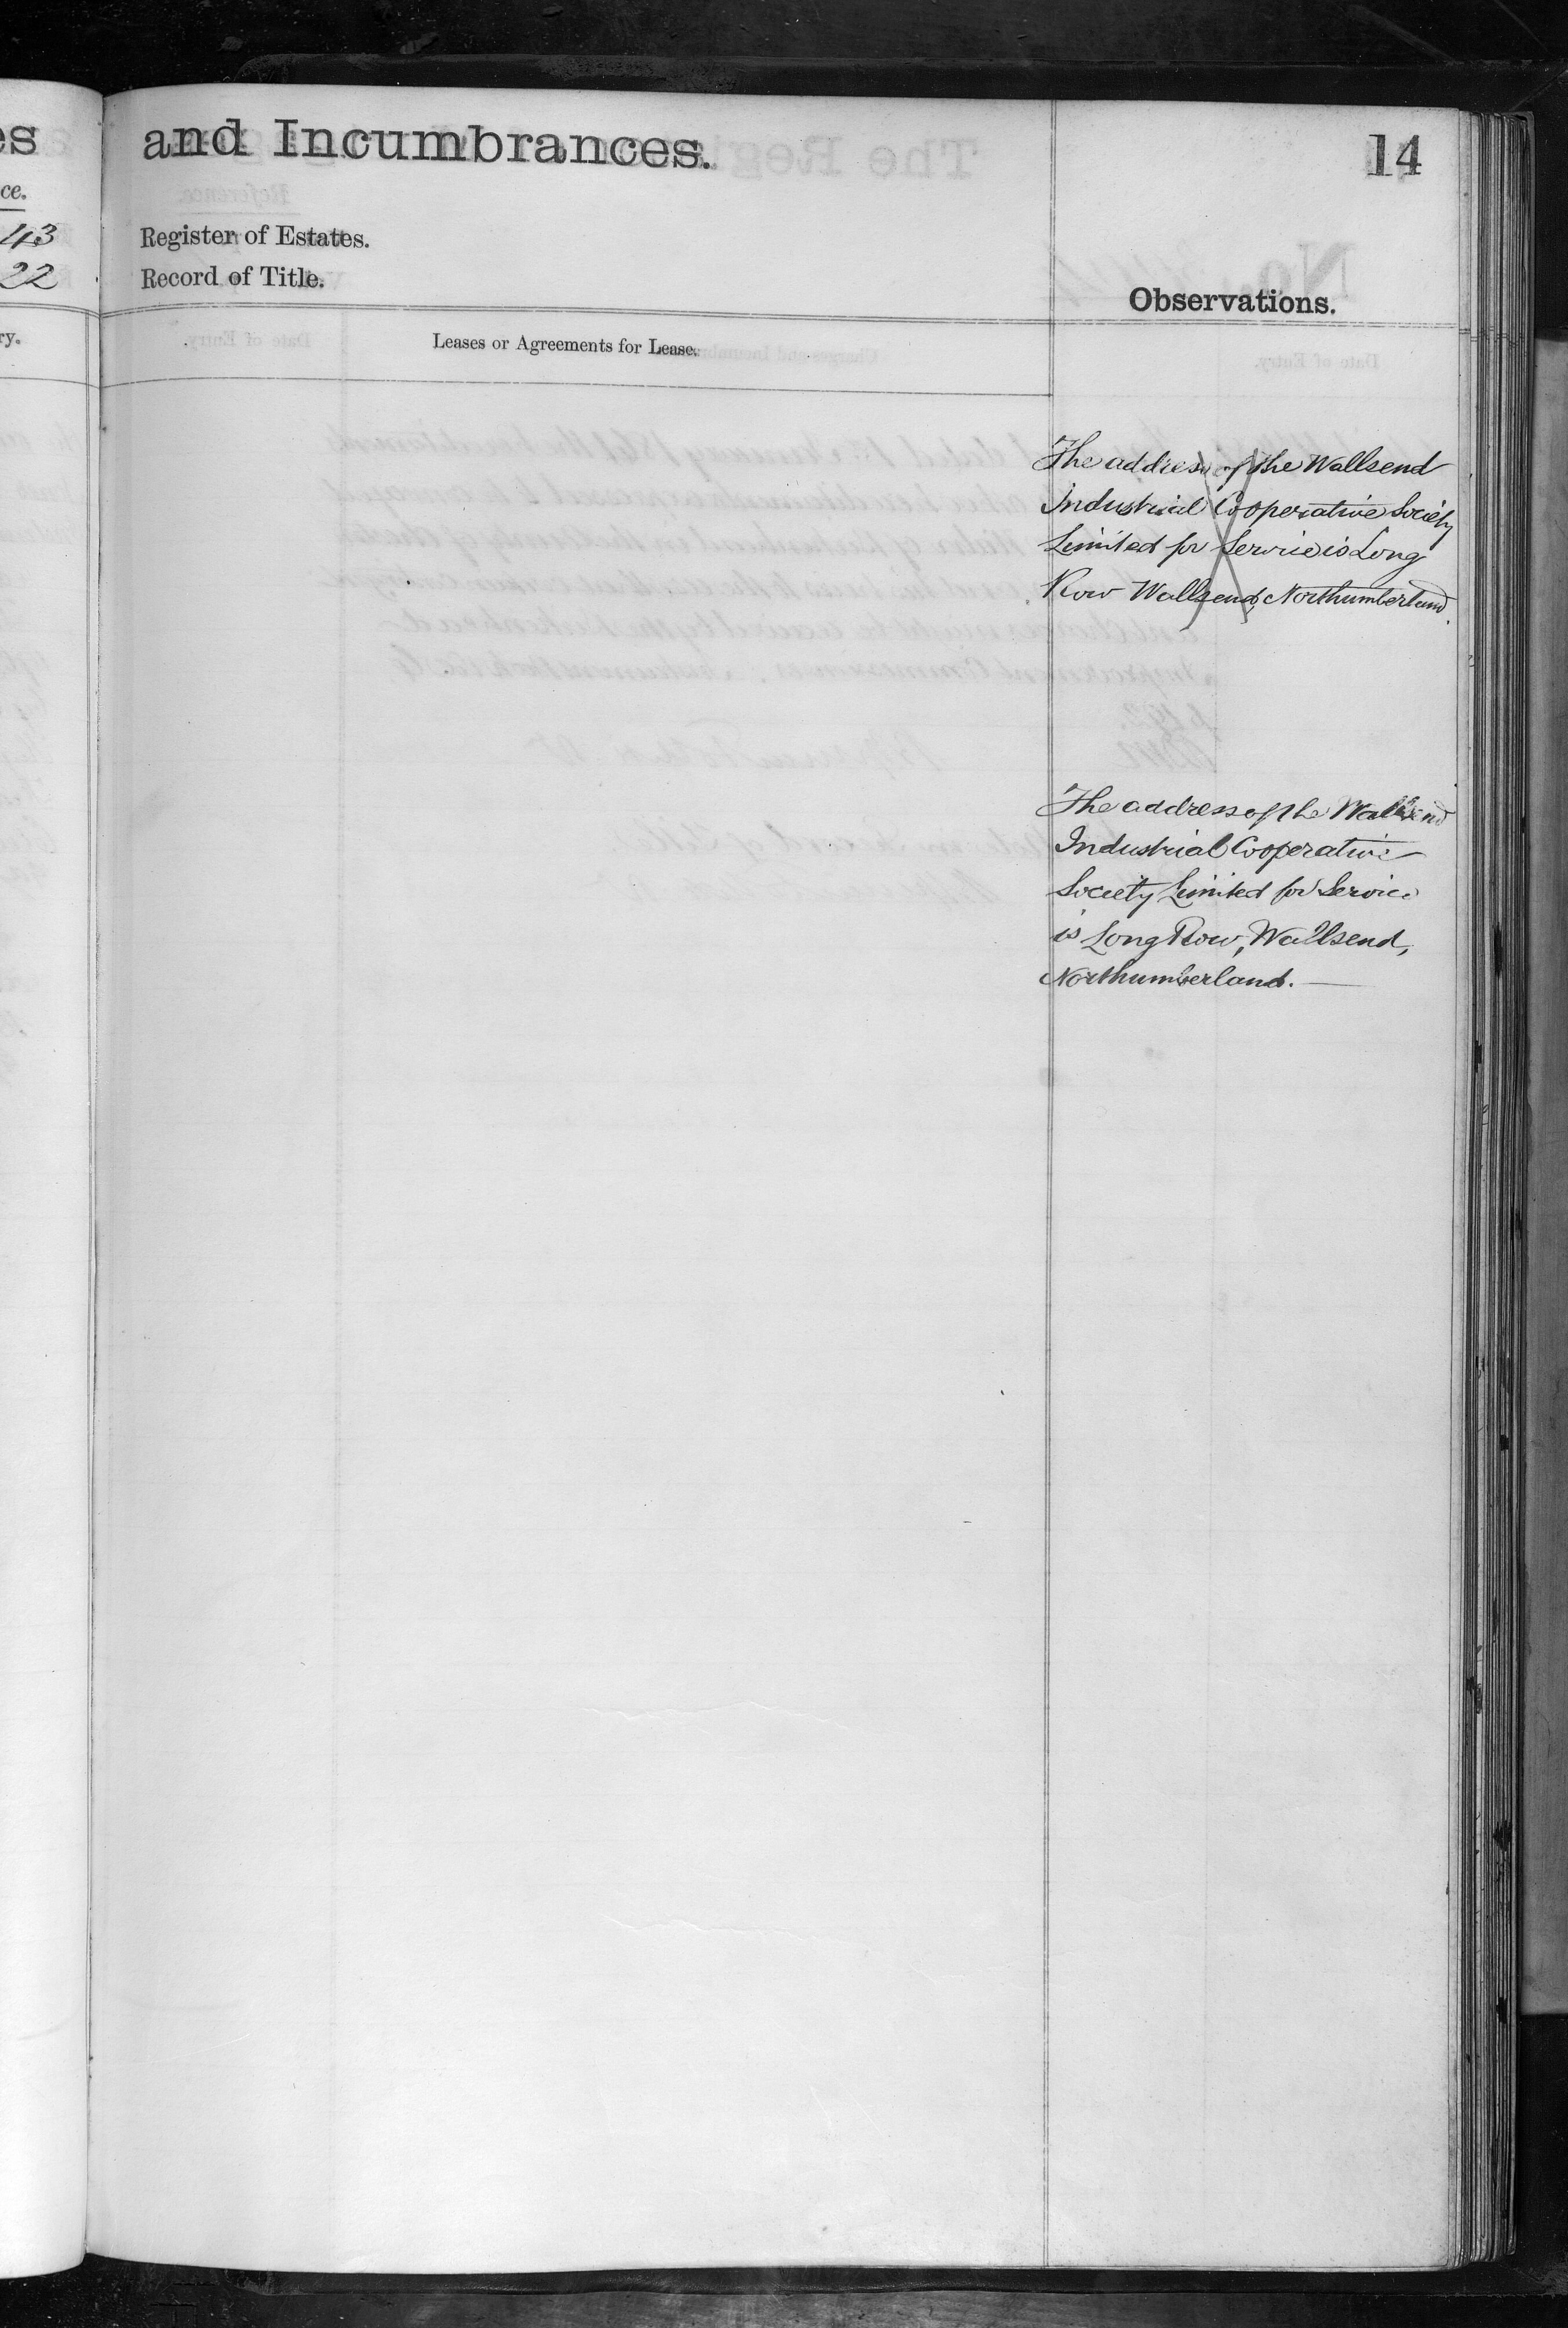 es
and Incumbrances.
14
ce.
43
Register of Estates.
22
Record of Title.
Observations.
ry.
Leases or Agreements for Lease.
The address of the Wallsend
Industrial Cooperative Society
Limited for Service is Long
Row Wallsend, Northumberland.
The address of the Wallsend
Industrial Cooperative
Society Limited for Service
is Long Row, Wallsend,
Northumberland.